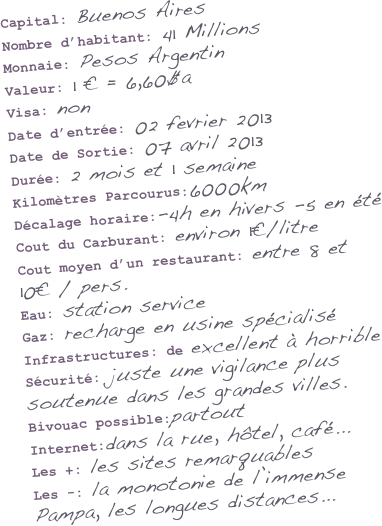 Capital: Buenos Aires
Nombre d'habitant: 41 Millions
Monnaie: Pesos Argentin
Valeur: 1 € = 6,60$a
Visa: non
Date d'entrée: 02 fevrier 2013
Date de Sortie: 07 avril 2013
Durée: 2 mois et 1 semaine
Kilomètres Parcourus: 6000km
Décalage horaire: -4h en hivers -5 en été
Cout du Carburant: environ 1€/litre
Cout moyen d'un restaurant: entre 8 et
10€ / pers.
Eau: station service
Gaz: recharge en usine spécialisé
Infrastructures: de excellent à horrible
Sécurité: juste une vigilance plus
soutenue dans les grandes villes.
Bivouac possible: partout
Internet: dans la rue, hôtel, café...
Les +: les sites remarquables
Les -: la monotonie de l'immense
Pampa, les longues distances...